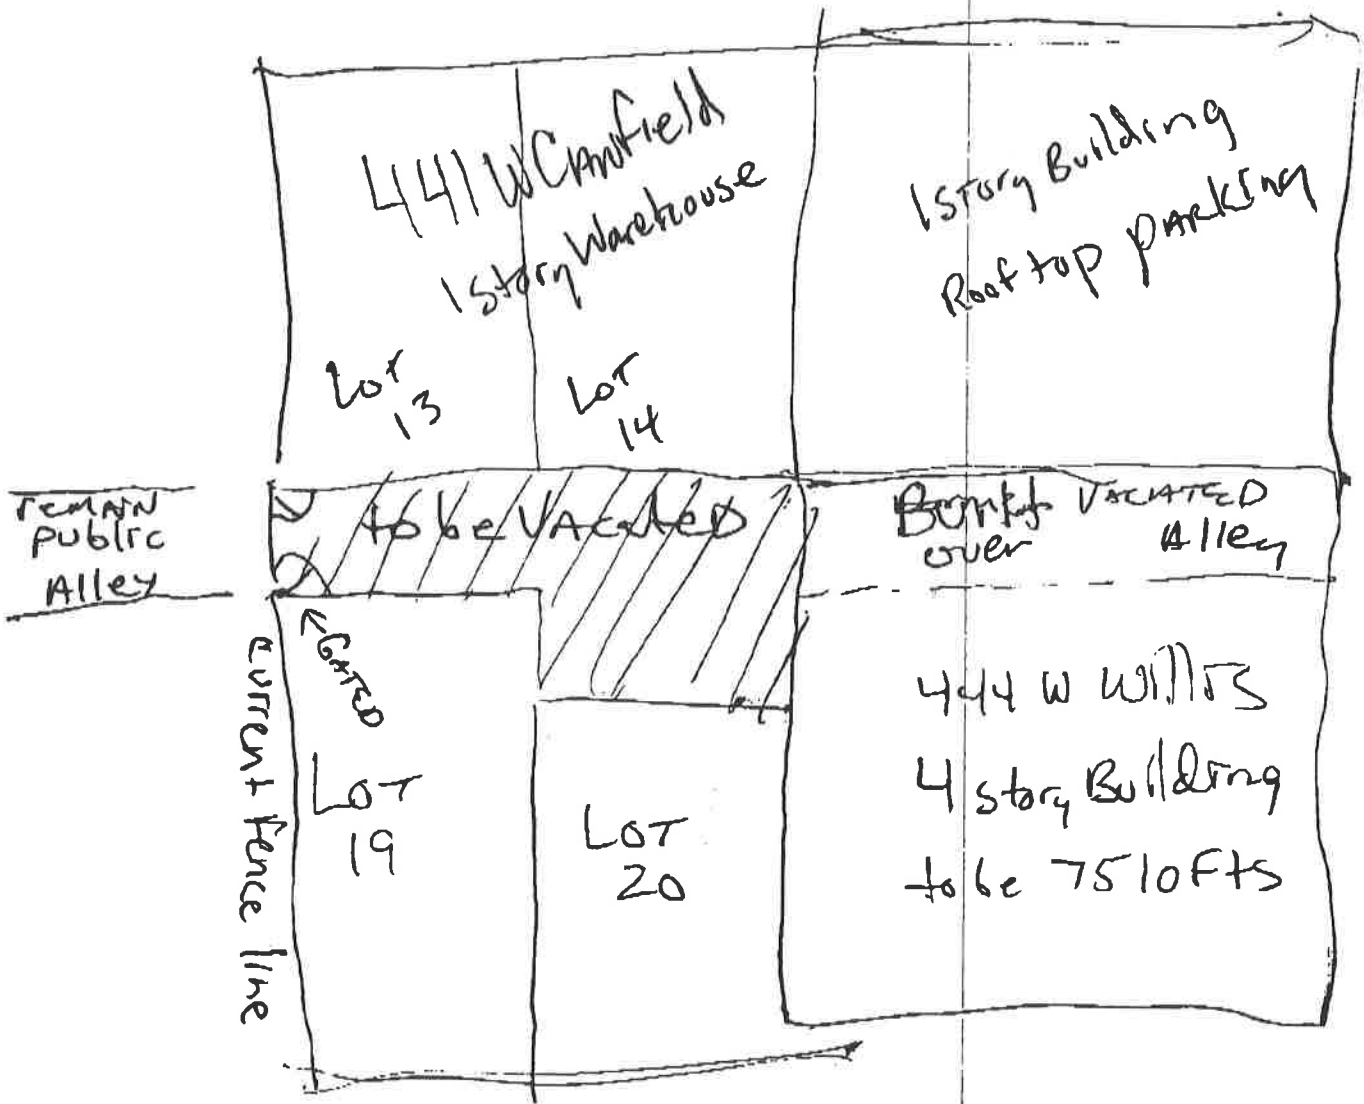 441 W Canfield
1 Story Warehouse
1 Story Building
Rooftop Parking
Lot
13
Lot
14
remain
public
Alley
to be Vacated
Built
over
Vacated
Alley
GATED
current fence line
Lot
19
Lot
20
444 W Willis
4 story Building
to be 75 lofts